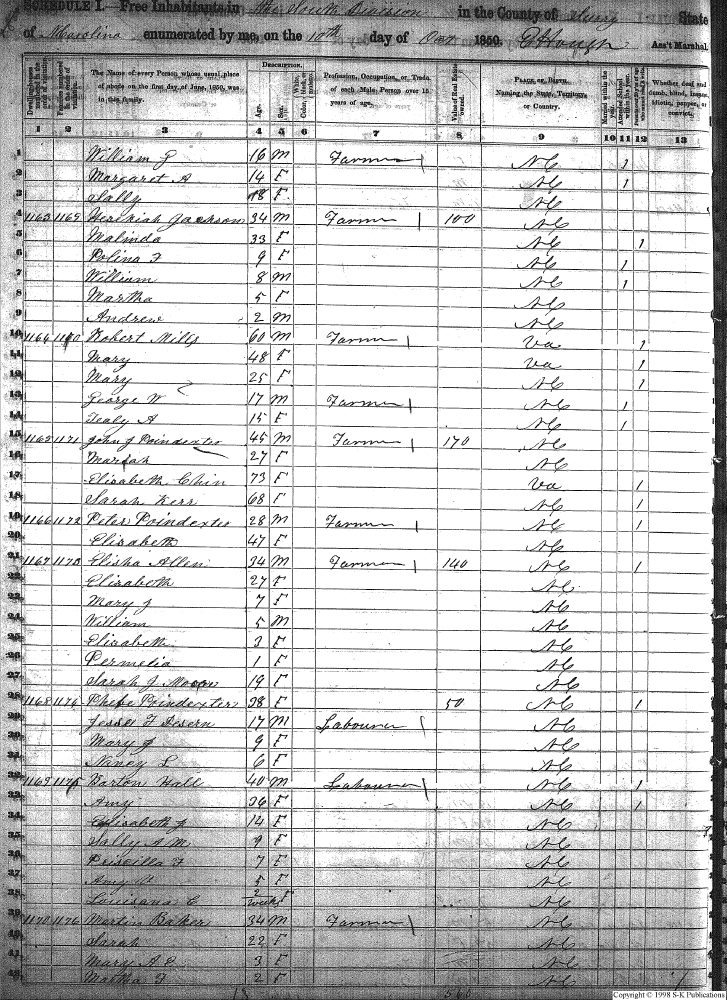 SCHEDULE I.—Free Inhabitants in the South Division in the County of Surry State
of N Carolina enumerated by me, on the 10th day of Oct 1850. Ass't Marshal
DESCRIPTION.
The Name of every Person whose usual place of abode on the first day of June, 1850, was in this family.
Age. Sex.
Profession, Occupation, or Trade of each Male Person over 15 years of age.
Value of Real Estate owned.
PLACE OF BIRTH. Naming the State, Territory, or Country.
Married within the year.
Whether deaf and dumb, blind, insane, idiotic, pauper, or convict.
1 2 3 4 5 6 7 8 9 10 11 12 13
1 William J 16 M Farmer NC 1
2 Margaret A 14 F NC 1
3 Sally 18 F NC
4 1163 1169 Hezekiah Jackson 34 M Farmer 100 NC
5 Malinda 33 F NC 1
6 Polina F 9 F NC 1
7 William 8 M NC 1
8 Martha 5 F NC
9 Andrew 2 M NC
10 1164 1170 Robert Mills 60 M Farmer Va 1
11 Mary 48 F Va 1
12 Mary 25 F NC 1
13 George W 17 M Farmer NC 1
14 Tealy A 15 F NC 1
15 1165 1171 John J Poindexter 45 M Farmer 170 NC
16 Mariah 27 F NC
17 Elisabeth Chin 73 F Va 1
18 Sarah Kerr 68 F NC 1
19 1166 1172 Peter Poindexter 28 M Farmer NC 1
20 Elisabeth 47 F NC
21 1167 1173 Elisha Allen 34 M Farmer 140 NC 1
22 Elisabeth 27 F NC
23 Mary J 7 F NC
24 William 5 M NC
25 Elisabeth 3 F NC
26 Permelia 1 F NC
27 Sarah J Moore 19 F NC
28 1168 1174 Phebe Poindexter 38 F 50 NC 1
29 Jesse F 17 M Labourer NC
30 Mary J 9 F NC
31 Nancy L 6 F NC
32 1169 1175 Barton Hall 40 M Labourer NC 1
33 Amy 36 F NC 1
34 Elisabeth J 14 F NC
35 Sally A M 9 F NC
36 Priscilla F 7 F NC
37 5 F NC
38 Louisana C 2 weeks F NC
39 1170 1176 Martin Baker 34 M Farmer NC
40 Sarah 22 F NC
41 Mary A E 3 F NC
42 Martha F 2 F NC
560
Copyright © 1998 S-K Publications